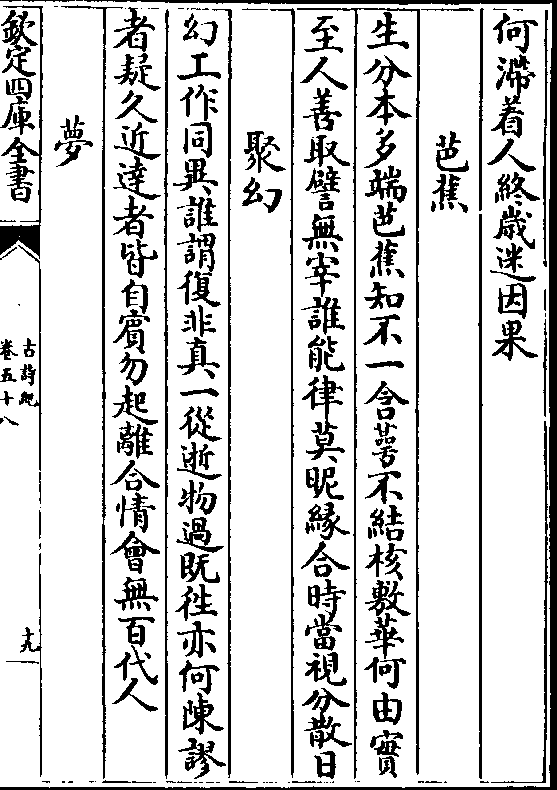 何滯着人終歳迷因果
芭蕉
生分本多端芭蕉知不一含萼不結核敷華何由實
至人善取譬無宰誰能律莫昵緣合時當視分散日
聚幻
幻工作同異誰謂復非真一從逝物過既徃亦何陳謬
者疑久近達者皆自賓勿起離合情會無百代人
夢
欽定四庫全書
古詩紀
卷五十八
十九